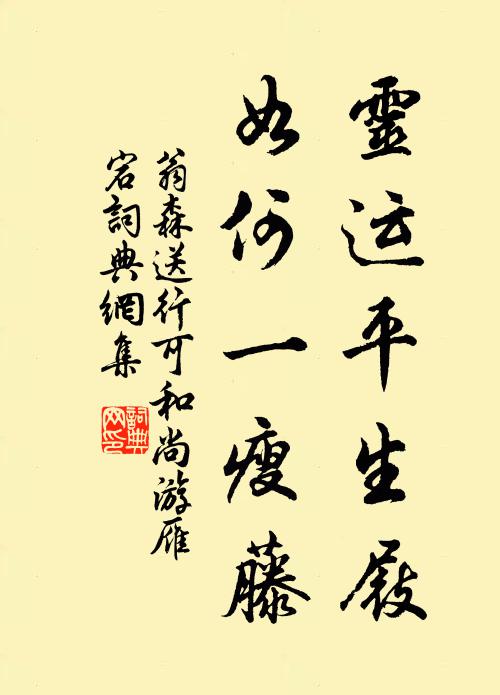 靈运平生屐
如何一瘦藤
翁森送行可和尚游雁
宕詞典網集
詞典网印